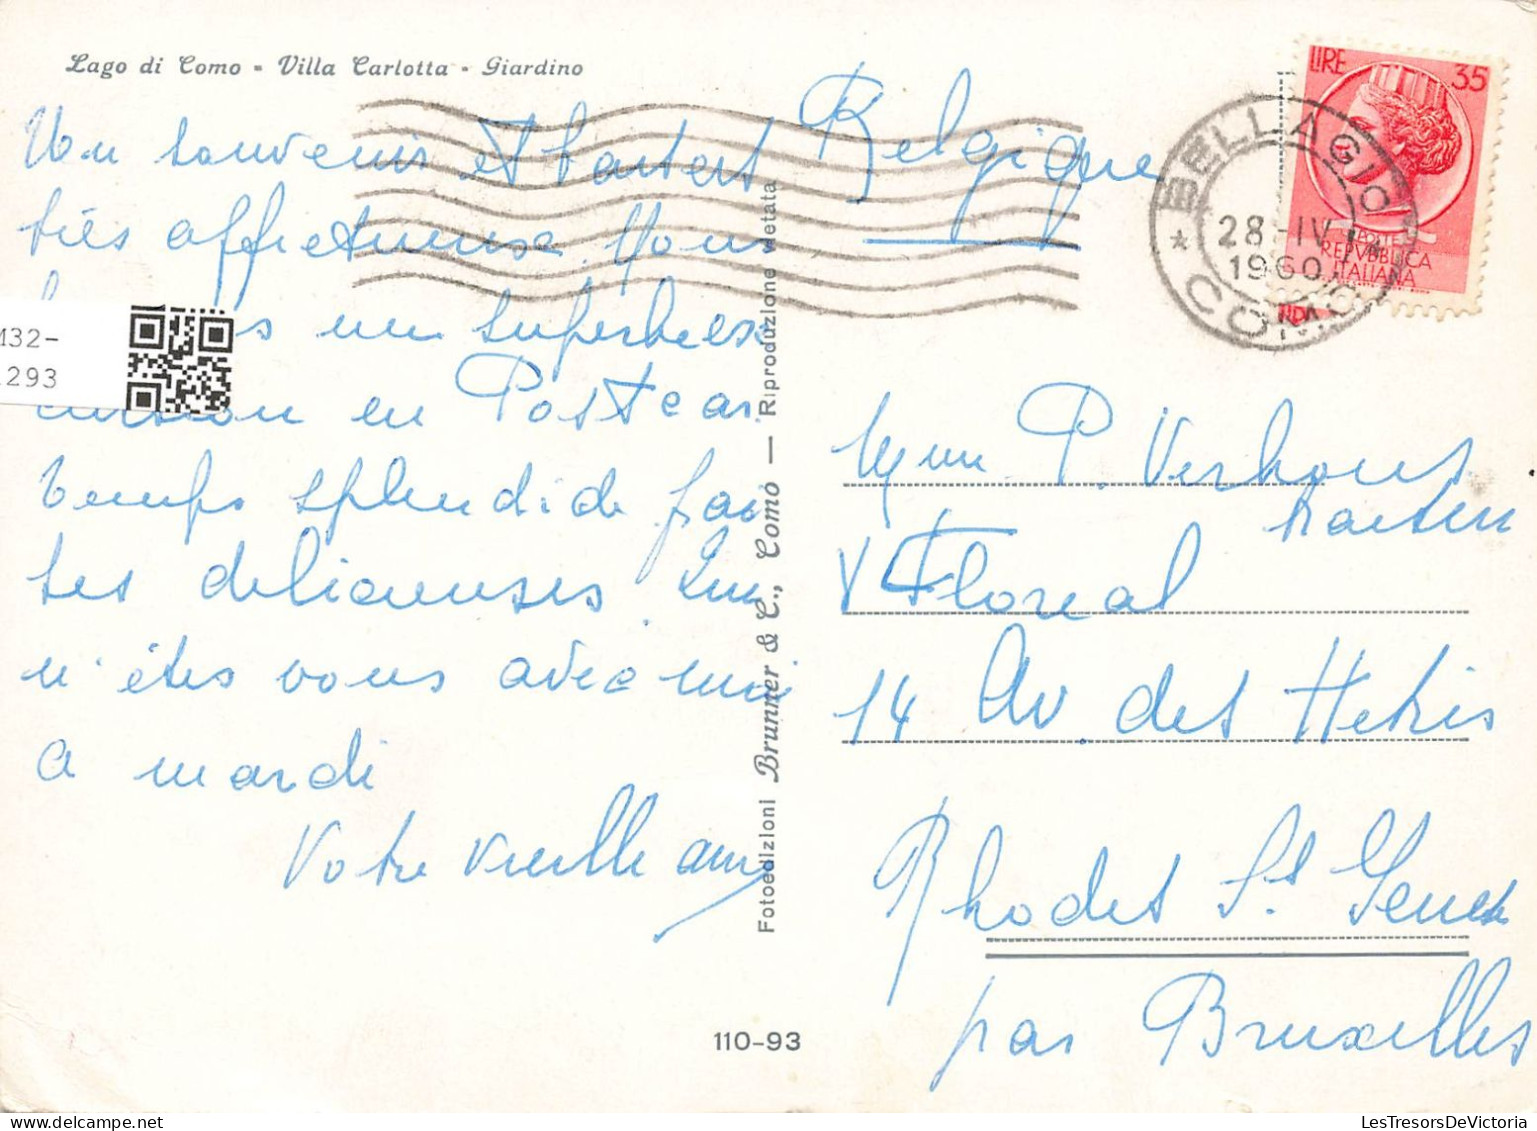 Lago di Como - Villa Carlotta - Giardino
Un souvenir et baisers
très affectueux. Nous
un superbe ex
cursion en Postcar
temps splendide fai
tes delicieuses. Que
n'êtes vous avec moi
a mardi
Votre vieille amie
Fotoedizioni Brunner & C., Como — Riproduzione vietata
110-93
Belgique
LIRE 35
POSTE
REPVBBLICA
ITALIANA
BELLAGIO
28-IV
1960
COMO
Mme P. Verhoust
V Floreal
14 Av. des Hetres
Rhodes St. Genese
par Bruxelles
M32-
1293
LesTresorsDeVictoria